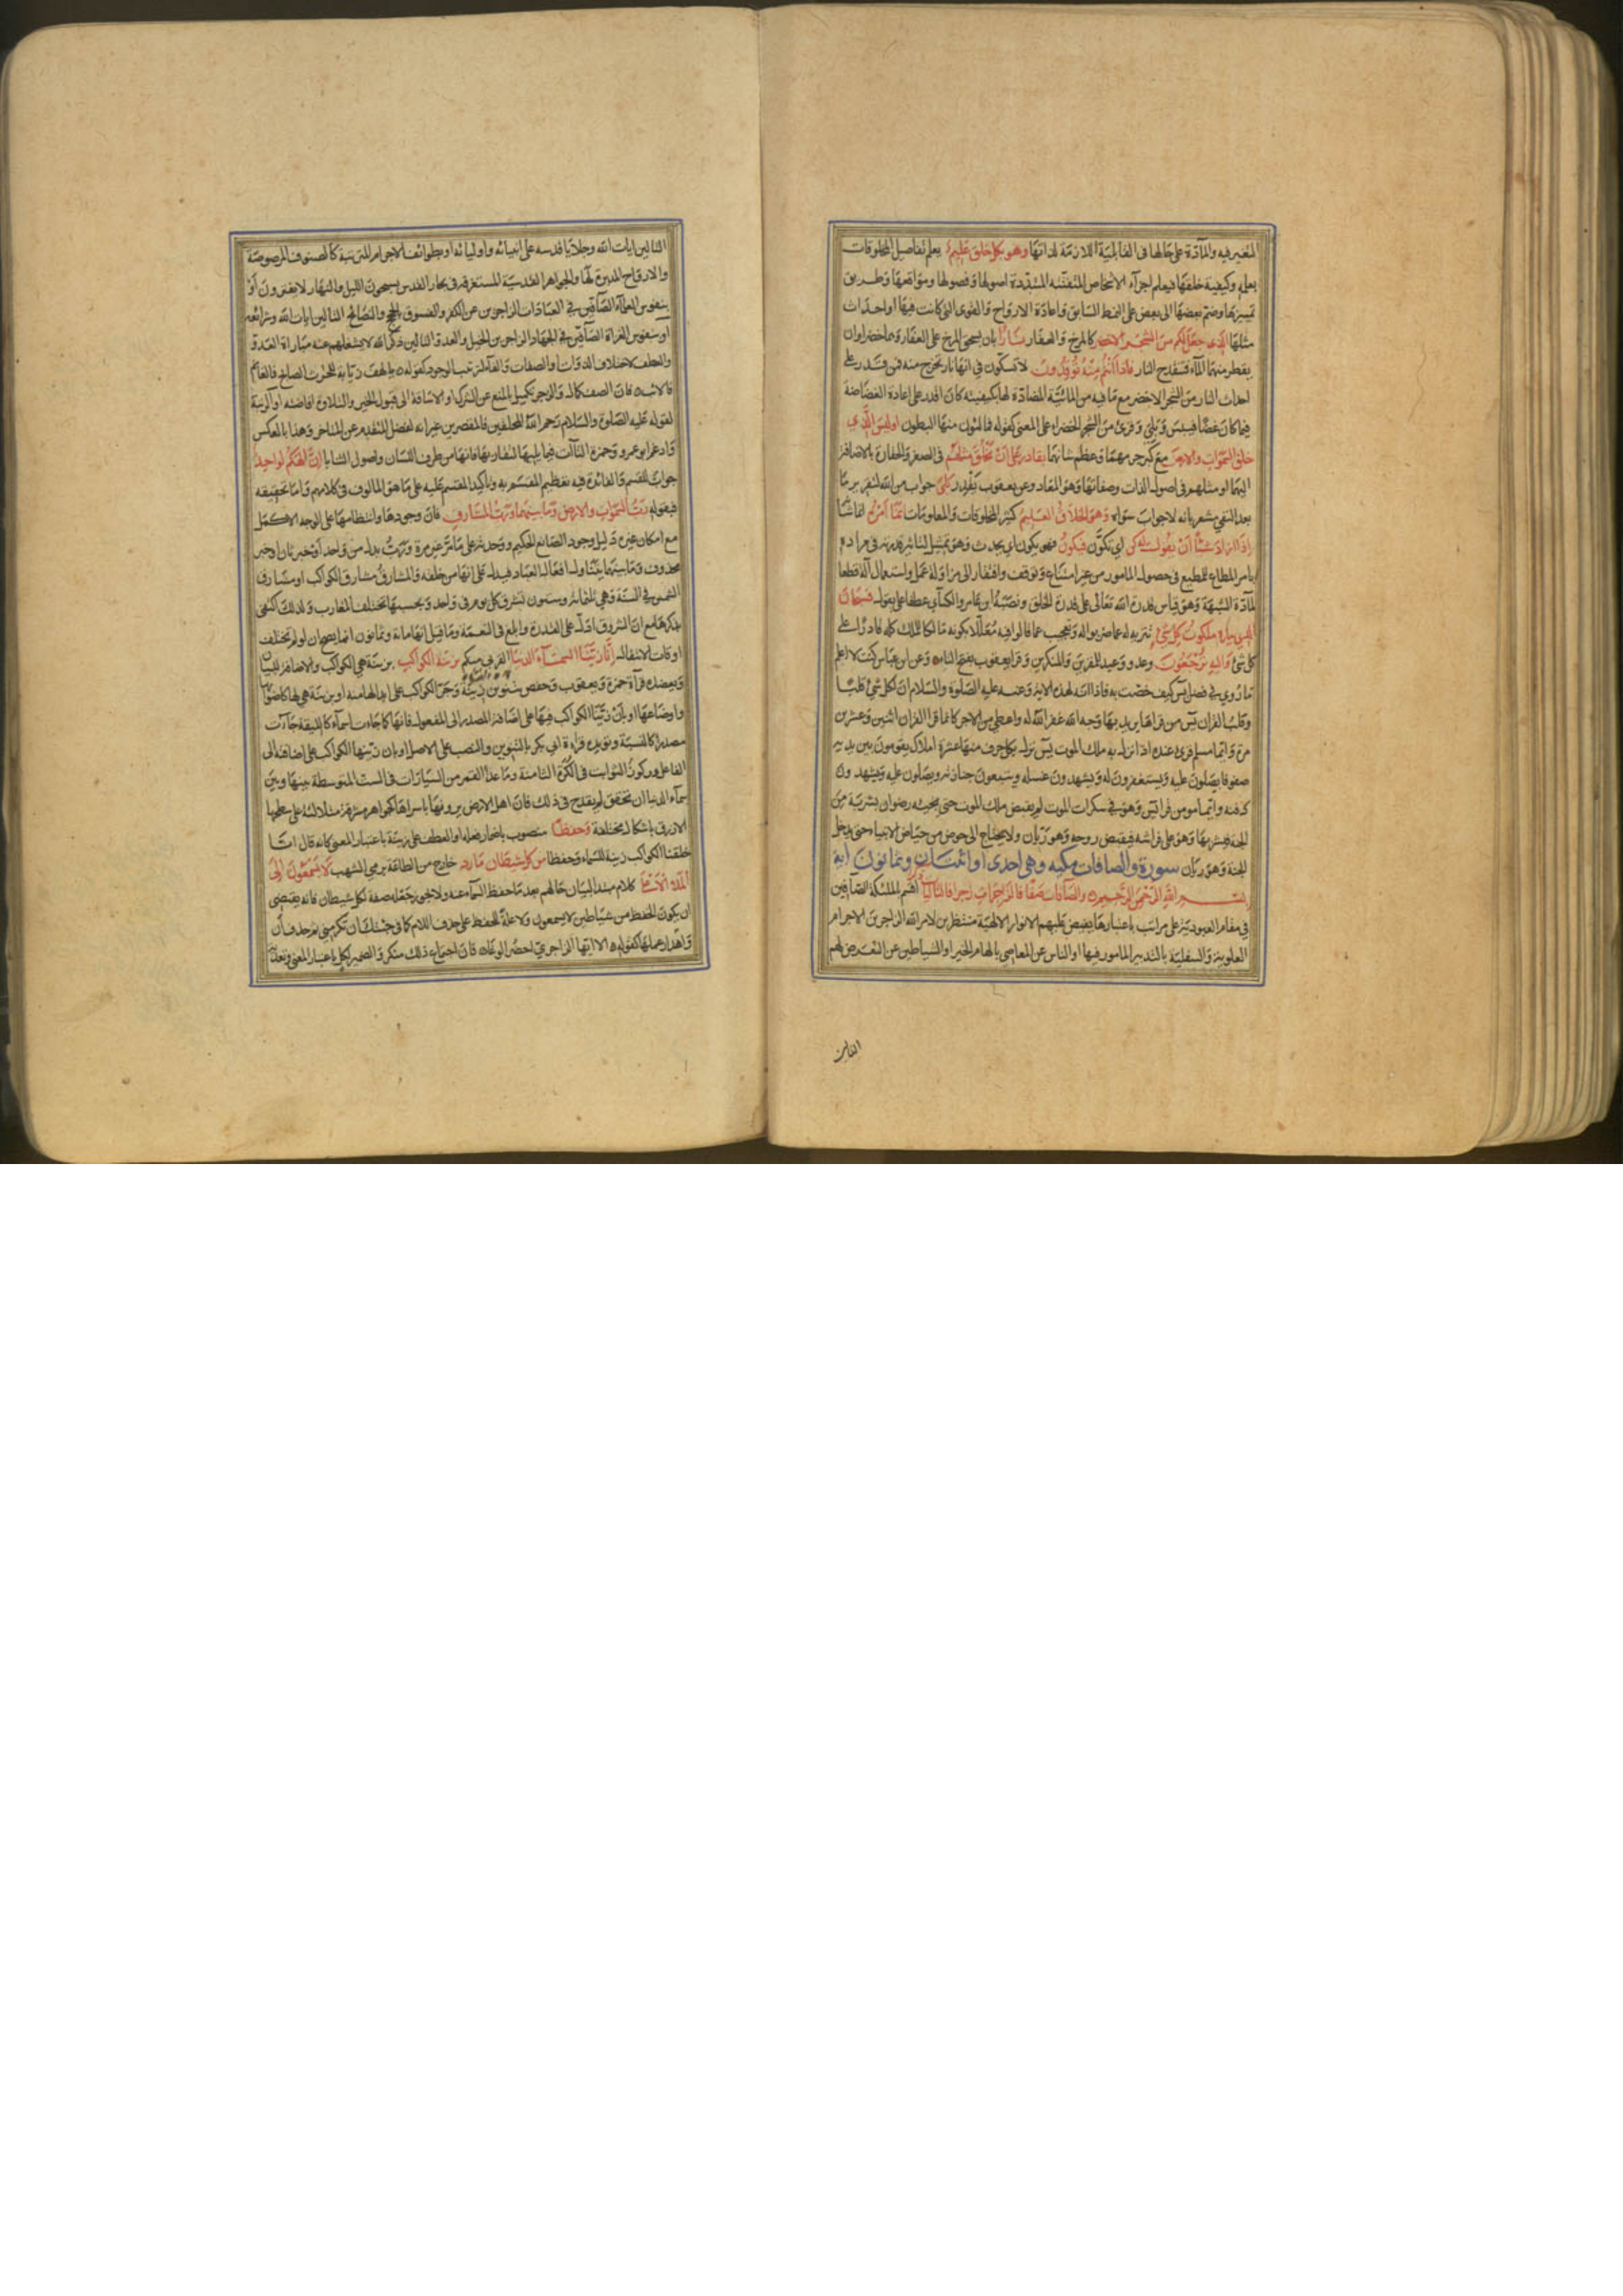 المتغير فيه والمادة على حالها فى القابلية اللازمة لذاتها وهو بكل خلق عليم يعلم تفاصيل المخلوقات
بعلمه وكيفية خلقها فيعلم اجزاء الاشخاص المتفتتة المتبددة اصولها وفصولها ومواقعها وطريق
تمييزها وضم بعضها الى بعض على النمط السابق واعادة الارواح والقوى التى كانت فيها او احداث
مثلها الذى جعل لكم من الشجر الاخضر كالمرخ والعفار نارا بان يسحق المرخ على العفار وهما خضراوان
يقطر منهما الماء فتنقدح النار فاذا انتم منه توقدون لا تشكون فى انها نار تخرج منه فمن قدر على
احداث النار من الشجر الاخضر مع ما فيه من المائية المضادة لها بكيفيته كان اقدر على اعادة الغضاضة
فيما كان غضا فيبس وبلى وقرئ من الشجر الخضراء على المعنى كقوله فمالئون منها البطون اوليس الذى
خلق السموات والارض مع كبر جرمهما وعظم شانهما بقادر على ان يخلق مثلهم فى الصغر والحقارة بالاضافة
اليهما او مثلهم فى اصول الذات وصفاتها وهو المعاد وعن يعقوب يقدر بلى جواب من الله لتقرير ما
بعد النفى مشعر بانه لا جواب سواه وهو الخلاق العليم كثير المخلوقات والمعلومات انما امره انما شانه
اذا اراد شيئا ان يقول له كن اى تكون فيكون فهو يكون اى يحدث وهو تمثيل لتاثير قدرته فى مراده
بامر المطاع للمطيع فى حصول المامور من غير امتناع وتوقف وافتقار الى مزاولة عمل واستعمال آلة قطعا
لمادة الشبهة وهو قياس قدرة الله تعالى على قدرة الخلق ونصبه ابن عامر والكسائى عطفا على يقول فسبحان
الذى بيده ملكوت كل شئ تنزيه له عما ضربوا له وتعجيب عما قالوا فيه معللا بكونه مالكا للملك كله قادرا على
كل شئ واليه ترجعون وعد ووعيد للمقرين والمنكرين وقرا يعقوب بفتح التاء وعن ابن عباس كنت لا اعلم
ما روى فى فضل يس كيف خصت به فاذا انه لهذه الاية وعنه عليه الصلوة والسلام ان لكل شئ قلبا
وقلب القران يس من قراها يريد بها وجه الله غفر الله له واعطى من الاجر كانما قرا القران اثنين وعشرين
مرة وايما مسلم قرئ عنده اذا نزل به ملك الموت يس نزل بكل حرف منها عشرة املاك يقومون بين يديه
صفوفا يصلون عليه ويستغفرون له ويشهدون غسله ويتبعون جنازته ويصلون عليه ويشهدون
دفنه وايما مومن قرا يس وهو فى سكرات الموت لم يقبض ملك الموت حتى يجيئه رضوان بشربة من
الجنة فيشربها وهو على فراشه فيقبض روحه وهو ريان ولا يحتاج الى حوض من حياض الانبياء حتى يدخل
الجنة وهو ريان سورة والصافات مكيه وهى احدى او اثنتان وثمانون اية
بسم الله الرحمن الرحيم والصافات صفا فالزاجرات زجرا فالتاليات اقسم بالملئكة الصافين
فى مقام العبودية على مراتب باعتبارها يفيض عليهم الانوار الالهية منتظرين لامر الله الزاجرين الاجرام
العلوية والسفلية بالتدبير المامور فيها او الناس عن المعاصى بالهام الخير او الشياطين عن التعرض لهم
التالين
التالين ايات الله وجلايا قدسه على انبيائه واوليائه او بطوائف الاجرام المترتبة كالصفوف المرصوصة
والارواح المدبرة لها والجواهر القدسية المستغرقة فى بحار القدس يسبحون الليل والنهار لا يفترون او
بنفوس العلماء الصافين فى العبادات الزاجرين عن الكفر والفسوق بالحجج والنصائح التالين ايات الله وشرائعه
او بنفوس الغزاة الصافين فى الجهاد الزاجرين الخيل والعدو التالين ذكر الله لا يشغلهم عنه مباراة العدو
والعطف لاختلاف الذوات او الصفات والفاء لترتيب الوجود كقوله يا لهف زيابة للحرث الصابح فالغانم
فالائب فان الصف كمال والزجر تكميل بالمنع عن الشر او الاشاقة الى قبول الخير والتلاوة افاضته او الرتبة
لقوله عليه الصلوة والسلام رحم الله المحلقين فالمقصرين غير انه لفضل المتقدم عن المتاخر وهذا بالعكس
وادغم ابو عمرو وحمزة التاآت فيما يليها لتقاربها فانها من طرف اللسان واصول الثنايا ان الهكم لواحد
جواب للقسم والفائدة فيه تعظيم المقسم به وتاكيد المقسم عليه على ما هو المالوف فى كلامهم واما تحقيقه
فبقوله رب السموات والارض وما بينهما ورب المشارق فان وجودها وانتظامها على الوجه الاكمل
مع امكان غيره دليل وجود الصانع الحكيم ووحدته على ما مر غير مرة ورب بدل من واحد او خبر ثان او خبر
محذوف وما بينهما يتناول افعال العباد فيدل على انها من خلقه والمشارق مشارق الكواكب او مشارق
الشمس فى السنة وهى ثلثمائة وستون تشرق كل يوم فى واحد وبحسبها تختلف المغارب ولذلك اكتفى
بذكرها مع ان الشروق ادل على القدرة وابلغ فى النعمة وما قيل انها مائة وثمانون انما يصح ان لو لم تختلف
اوقات الانتقال انا زينا السماء الدنيا القربى منكم بزينة الكواكب بزينة هى الكواكب والاضافة للبيان
ويعضده قراة حمزة ويعقوب وحفص بتنوين زينة وجر الكواكب على ابدالها منه او بزينة هى لها كاضوائها
واوضاعها او بان زينا الكواكب فيها على اضافة المصدر الى المفعول فانها كما جاءت اسماء كالليقة جاءت
مصدرا كالنسبة ويؤيده قراءة ابى بكر بالتنوين والنصب على الاصل او بان زينتها الكواكب على اضافته الى
الفاعل وركوز الثوابت فى الكرة الثامنة وما عدا القمر من السيارات فى الست المتوسطة بينها وبين
سماء الدنيا ان تحقق لم يقدح فى ذلك فان اهل الارض يرونها باسرها كجواهر مشرقة متلالئة على سطحها
الازرق باشكال مختلفة وحفظا منصوب باضمار فعله او العطف على زينة باعتبار المعنى كانه قال انا
خلقنا الكواكب زينة للسماء وحفظا من كل شيطان مارد خارج من الطاعة برمى الشهب لا يسمعون الى
الملاء الاعلى كلام مبتدا لبيان حالهم بعد ما حفظ السماء عنه ولا يجوز جعله صفة لكل شيطان فانه يقتضى
ان يكون الحفظ من شياطين لا يسمعون ولا علة للحفظ على حذف اللام كما فى جئتك ان تكرمنى ثم حذف ان
واهدار عملها كقوله الا ايهذا الزاجرى احضر الوغا فان اجتماع ذلك منكر والضمير لكل باعتبار المعنى وتعدية